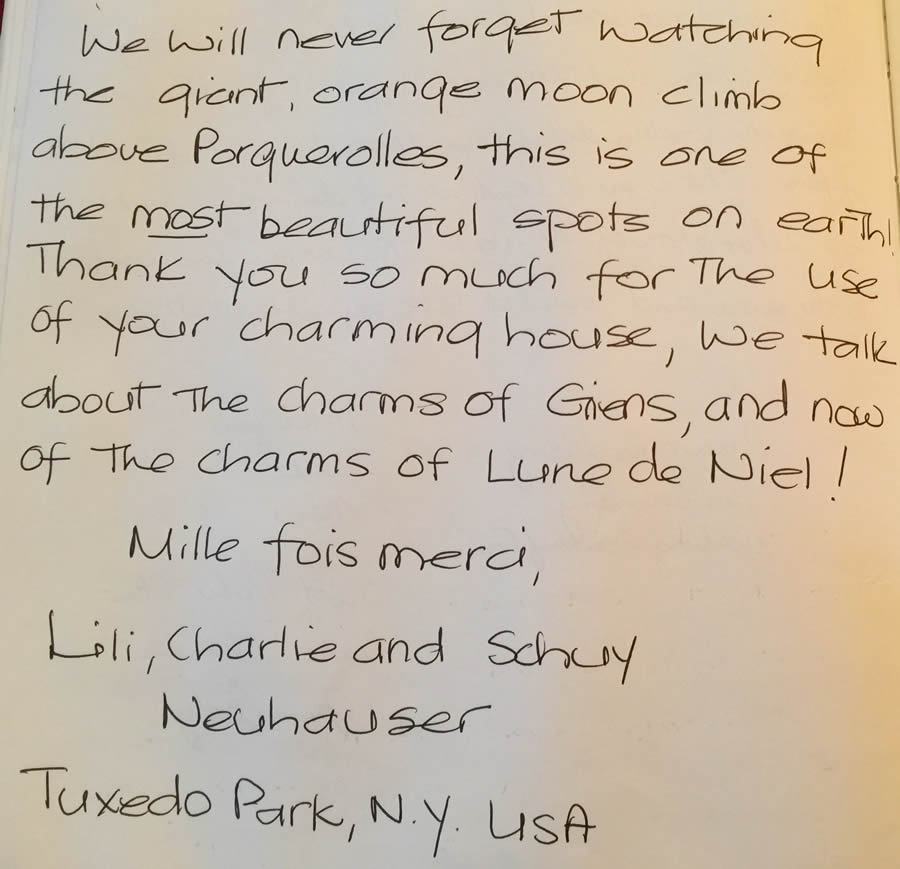 We will never forget watching
the giant, orange moon climb
above Porquerolles, this is one of
the most beautiful spots on earth!
Thank you so much for The use
of your charming house, We talk
about The charms of Giens, and now
of The charms of Lune de Niel!
Mille fois merci,
Lili, Charlie and Schuy
Neuhauser
Tuxedo Park, N.Y. USA